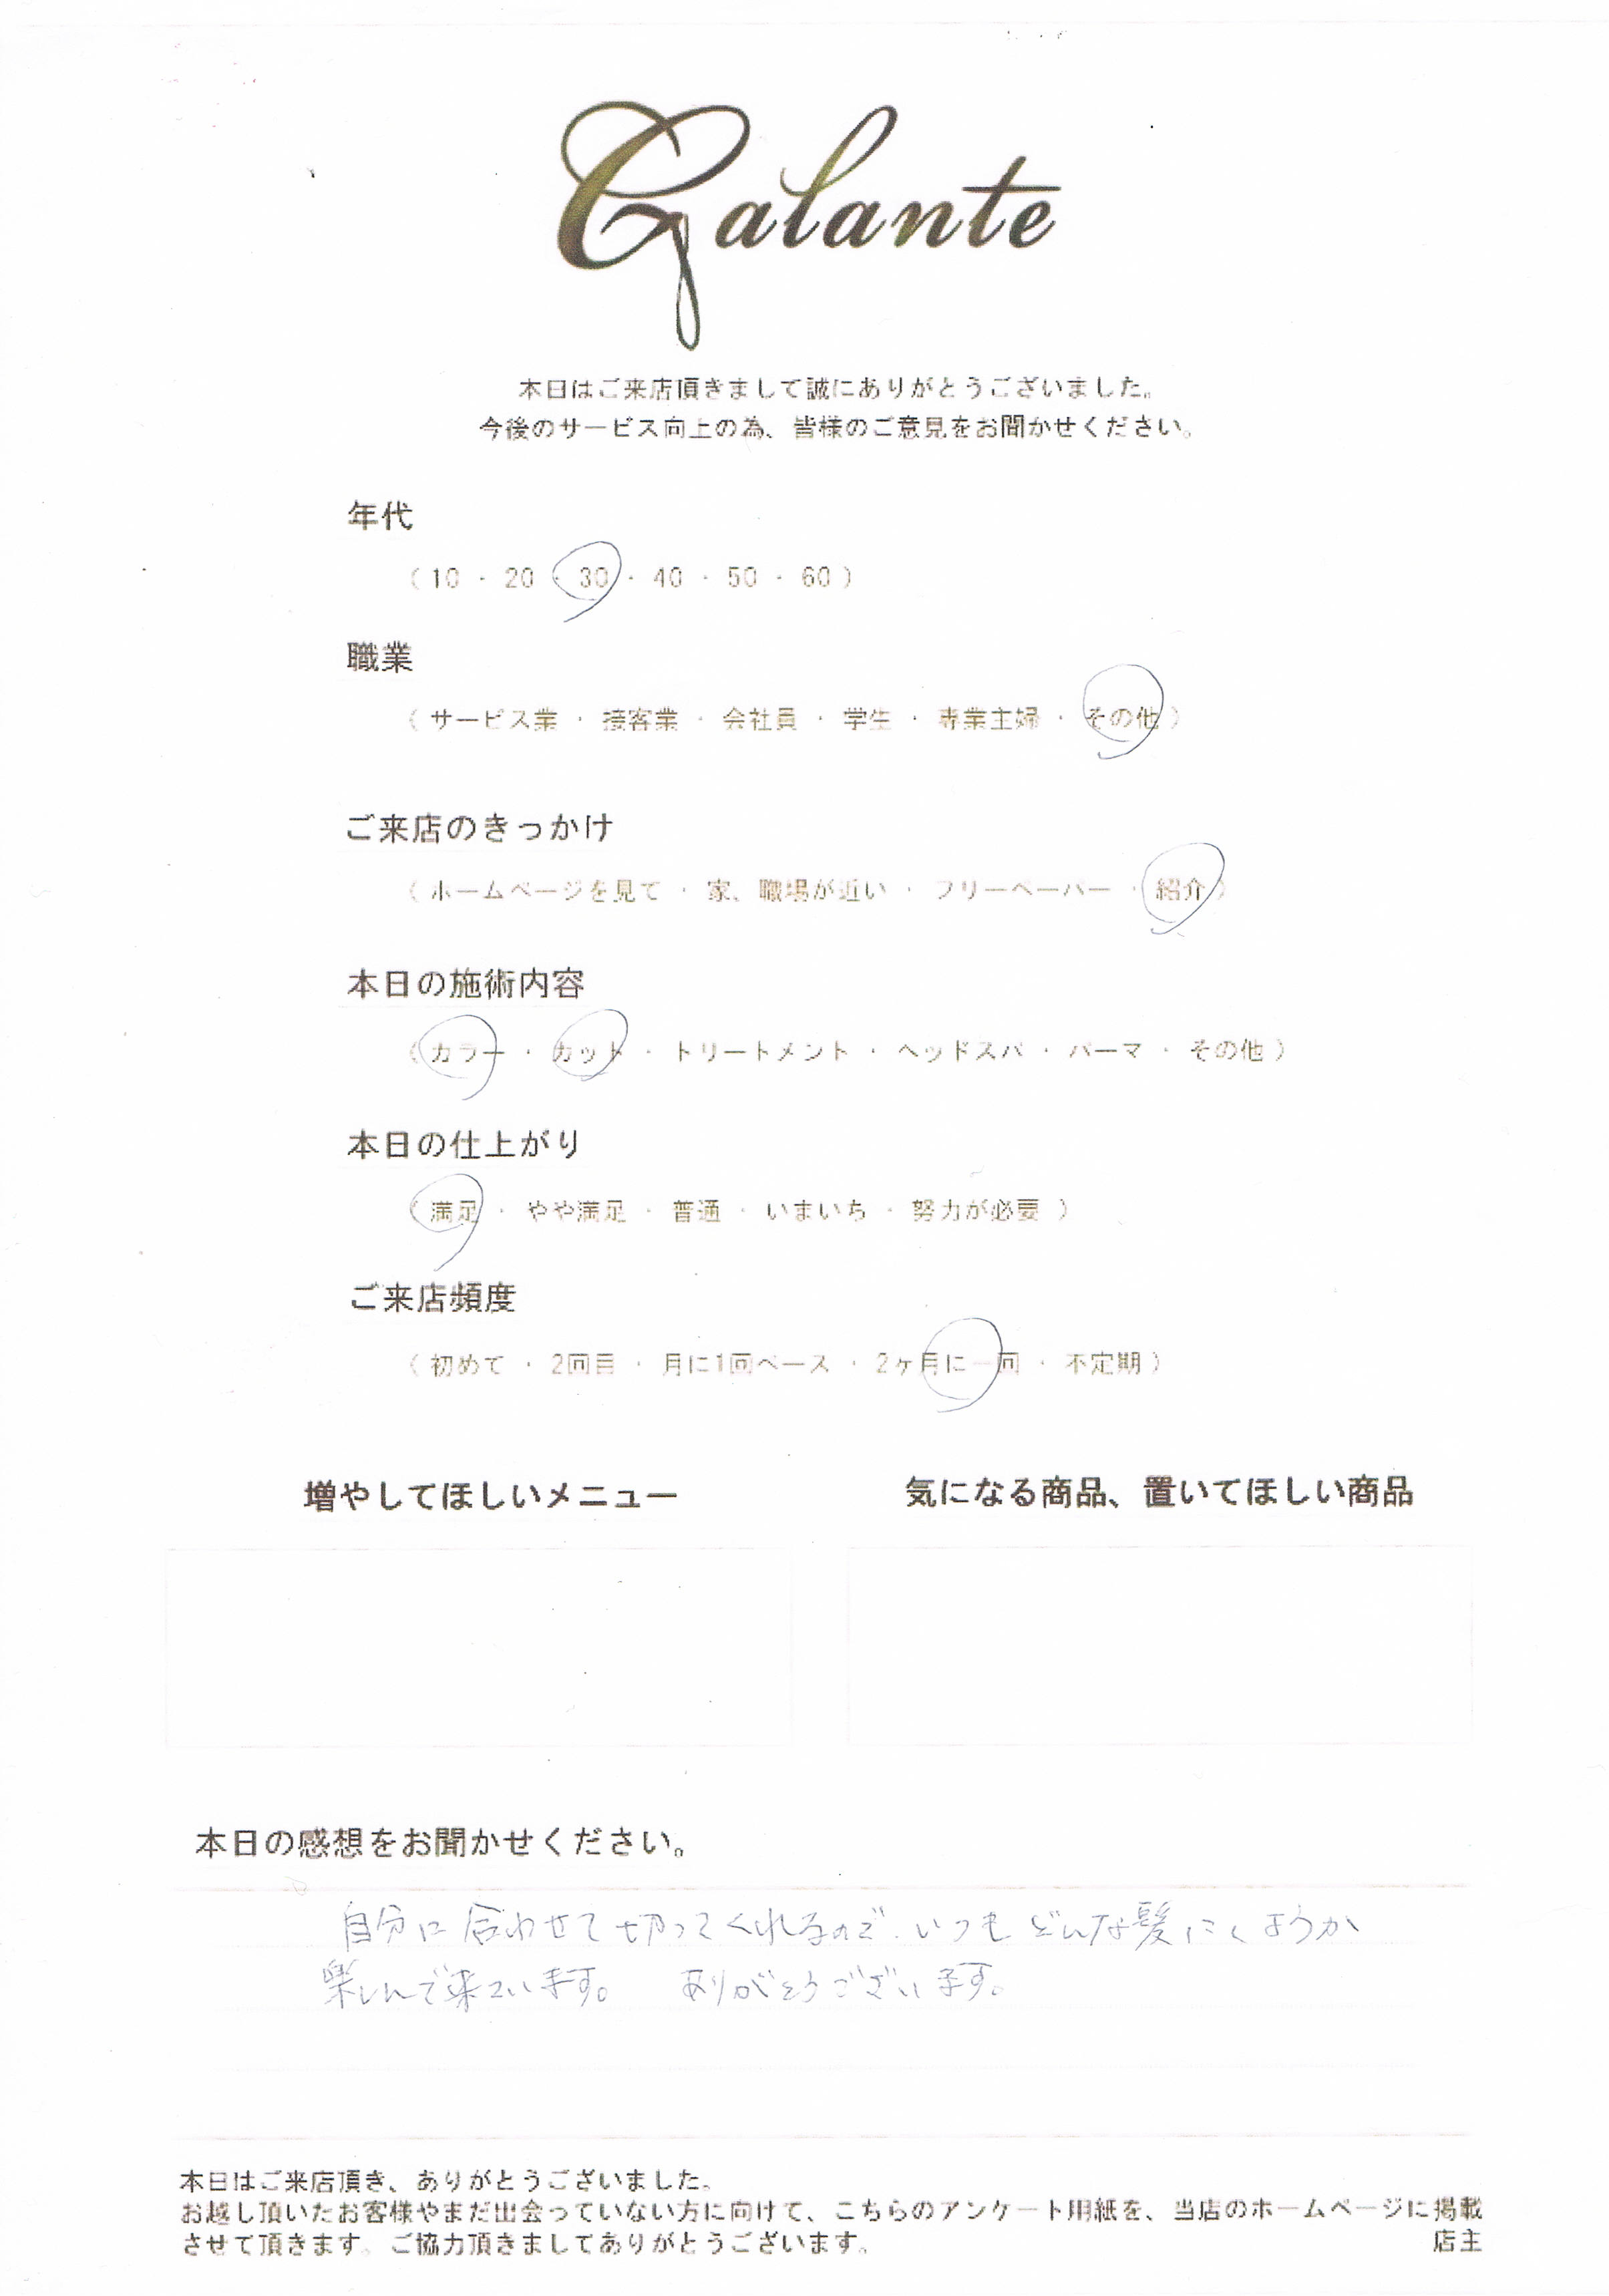 Galante
本日はご来店頂きまして誠にありがとうございました。
今後のサービス向上の為、皆様のご意見をお聞かせください。
年代
（ 10 ・ 20 ・ 30 ・ 40 ・ 50 ・ 60 ）
職業
（ サービス業 ・ 接客業 ・ 会社員 ・ 学生 ・ 専業主婦 ・ その他 ）
ご来店のきっかけ
（ ホームページを見て ・ 家、職場が近い ・ フリーペーパー ・ 紹介 ）
本日の施術内容
（ カラー ・ カット ・ トリートメント ・ ヘッドスパ ・ パーマ ・ その他 ）
本日の仕上がり
（ 満足 ・ やや満足 ・ 普通 ・ いまいち ・ 努力が必要 ）
ご来店頻度
（ 初めて ・ 2回目 ・ 月に1回ペース ・ 2ヶ月に一回 ・ 不定期 ）
増やしてほしいメニュー 気になる商品、置いてほしい商品
本日の感想をお聞かせください。
自分に合わせて切ってくれるので、いつもどんな髪にしようか
楽しんで来ています。 ありがとうございます。
本日はご来店頂き、ありがとうございました。
お越し頂いたお客様やまだ出会っていない方に向けて、こちらのアンケート用紙を、当店のホームページに掲載
させて頂きます。ご協力頂きましてありがとうございます。 店主